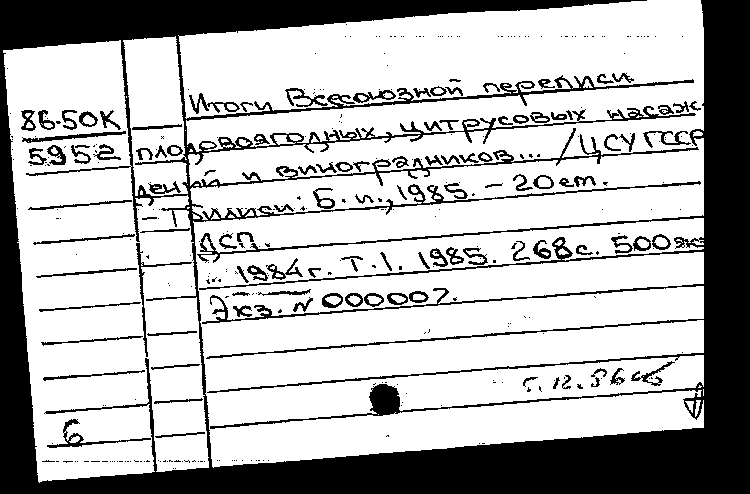 Итоги Всесоюзной переписи
86-50К
плодовоягодных, цитрусовых насаж-
5952
дений и виноградников... /ЦСУ ГССР
- Тбилиси: Б. и., 1985. - 20 см.
ДСП.
... 1984 г. Т. 1. 1985. 268 с. 500 экз
Экз. N 000007.
12.86
6